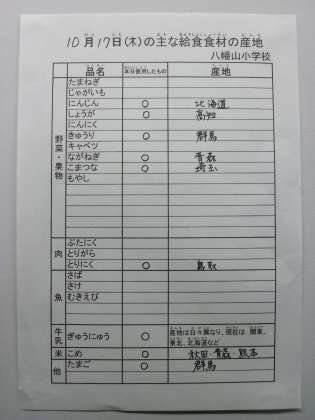 10月17日(木)の主な給食食材の産地
八幡山小学校
品名 本日使用したもの 産地
野菜・果物
たまねぎ
じゃがいも
にんじん ○ 北海道
しょうが ○ 高知
にんにく
きゅうり ○ 群馬
キャベツ
ながねぎ ○ 青森
こまつな ○ 埼玉
もやし
肉
ぶたにく
とりがら
とりにく ○ 鳥取
魚
さば
さけ
むきえび
牛乳 ぎゅうにゅう ○ 産地は日々異なり、現在は 関東、
東北、北海道など
米 こめ ○ 秋田・青森・熊本
他 たまご ○ 群馬